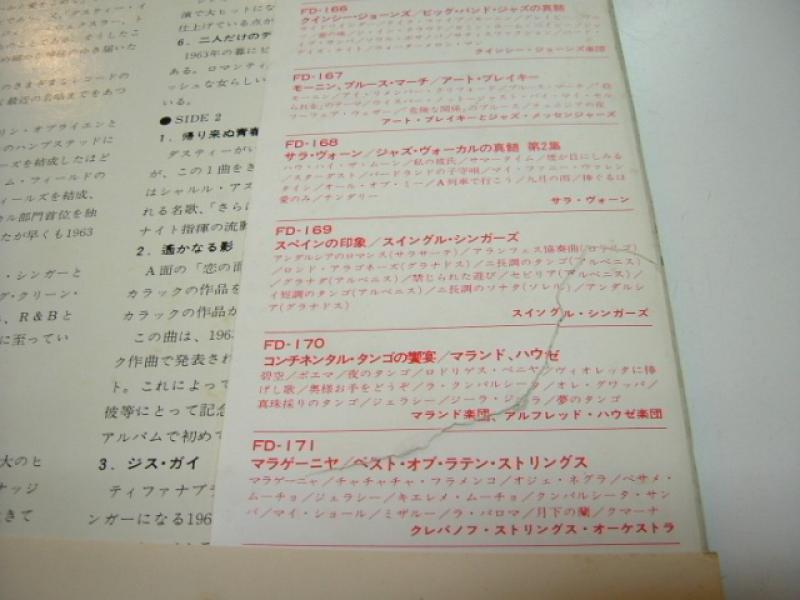 演で大ヒットにな
仕上げている点が
6. 二人だけのデ
1963年の暮にビ
ある。ロマンティ
ッシュな女らしい
いる。
●SIDE 2
1. 帰り来ぬ青春
ダスティーがい
が、この1曲をき
はシャルル・アズ
れる名歌、「さらに
ナイト指揮の流動
2. 遥かなる影
A面の「恋の面
カラックの作品を
カラックの作品が
この曲は、1963
ク作曲で発表され
ト。これによって
彼等にとって記念
アルバムで初めて
3. ジス・ガイ
ティファナブラ
ンガーになる196
リン・オブライエンと
のハンプステッドに
ーズを結成したほど
ム・フィールドの
ィールズを結成、
カル部門首位を独
たが早くも1963
・シンガーと
グ・クリーン・
、R&Bと
に至ってい
大のヒ
ナッジ
きて
FD-166
クインシー・ジョーンズ/ビッグ・バンド・ジャズの真髄
クインシー・ジョーンズ楽団
FD-167
モーニン、ブルース・マーチ/アート・ブレイキー
モーニン/アイ・リメンバー・クリフォード/ブルース・マーチ/「殺
られる」のテーマ/ウイスパー・ノット/ジャスト・バイ・マイセルフ
アート・ブレイキーとジャズ・メッセンジャーズ
FD-168
サラ・ヴォーン/ジャズ・ヴォーカルの真髄 第2集
ハウ・ハイ・ザ・ムーン/私の彼氏/サマータイム/煙が目にしみる
/スターダスト/バードランドの子守唄/マイ・ファニー・ヴァレン
タイン/オール・オブ・ミー/A列車で行こう/九月の雨/捧ぐるは
愛のみ/テンダリー
サラ・ヴォーン
FD-169
スペインの印象/スイングル・シンガーズ
アンダルシアのロマンス(サラサーテ)/アランフェス協奏曲(ロドリゴ)
/ロンド・アラゴネーズ(グラナドス)/ニ長調のタンゴ(アルベニス)
/グラナダ(アルベニス)/禁じられた遊び/セビリア(アルベニス)/
イ短調のタンゴ(アルベニス)/ニ長調のソナタ(ソレル)/アンダルシ
ア(グラナドス)
スイングル・シンガーズ
FD-170
コンチネンタル・タンゴの饗宴/マランド、ハウゼ
碧空/ポエマ/夜のタンゴ/ロドリゲス・ペニヤ/ヴィオレッタに捧
げし歌/奥様お手をどうぞ/ラ・クンパルシータ/オレ・グワッパ/
真珠採りのタンゴ/ジェラシー/ジーラ・ジーラ/夢のタンゴ
マランド楽団、アルフレッド・ハウゼ楽団
FD-171
マラゲーニヤ/ベスト・オブ・ラテン・ストリングス
マラゲーニャ/チャチャチャ・フラメンコ/オジェ・ネグラ/ベサメ・
ムーチョ/ジェラシー/キエレメ・ムーチョ/クンパルシータ・サン
バ/マイ・ショール/ミザルー/ラ・パロマ/月下の蘭/クマーナ
クレバノフ・ストリングス・オーケストラ